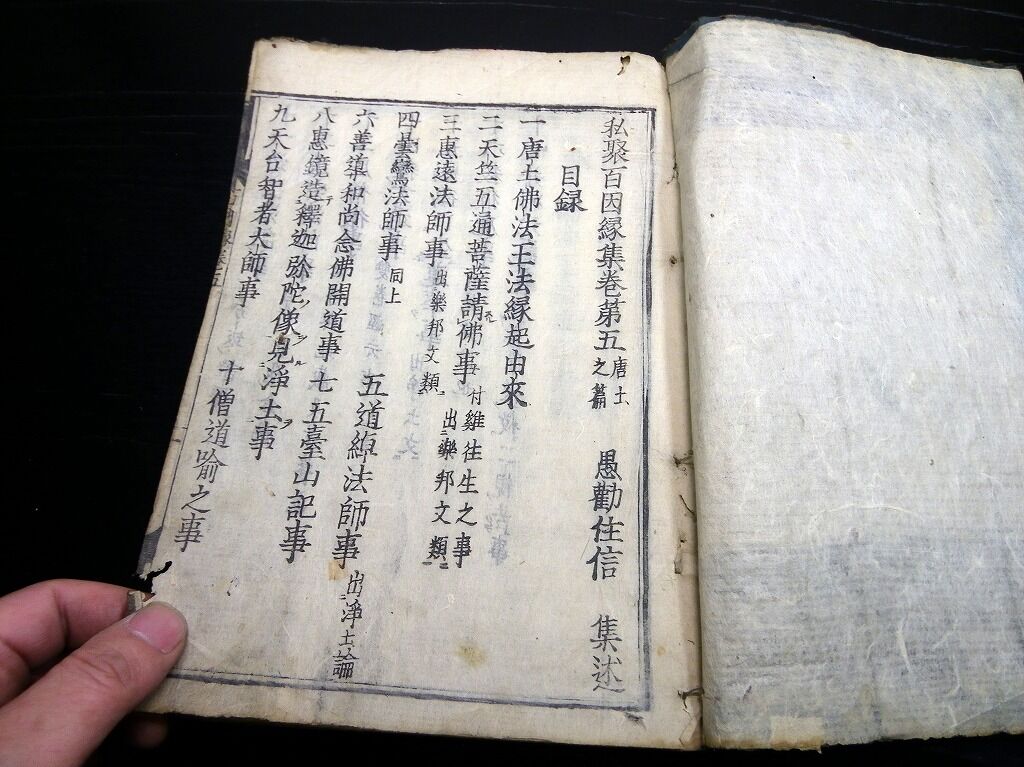 私聚百因縁集卷第五 唐土之篇 愚勸住信 集述
目録
一唐土佛法王法縁起由來
二天竺五通菩薩請佛事 付雞往生之事 出樂邦文類
三惠遠法師事 出樂邦文類
四曇鸞法師事 同上 五道綽法師事 出淨土論
六善導和尚念佛開道事 七五臺山記事
八惠鏡造釋迦弥陀像見淨土事
九天台智者大師事 十僧道喻之事